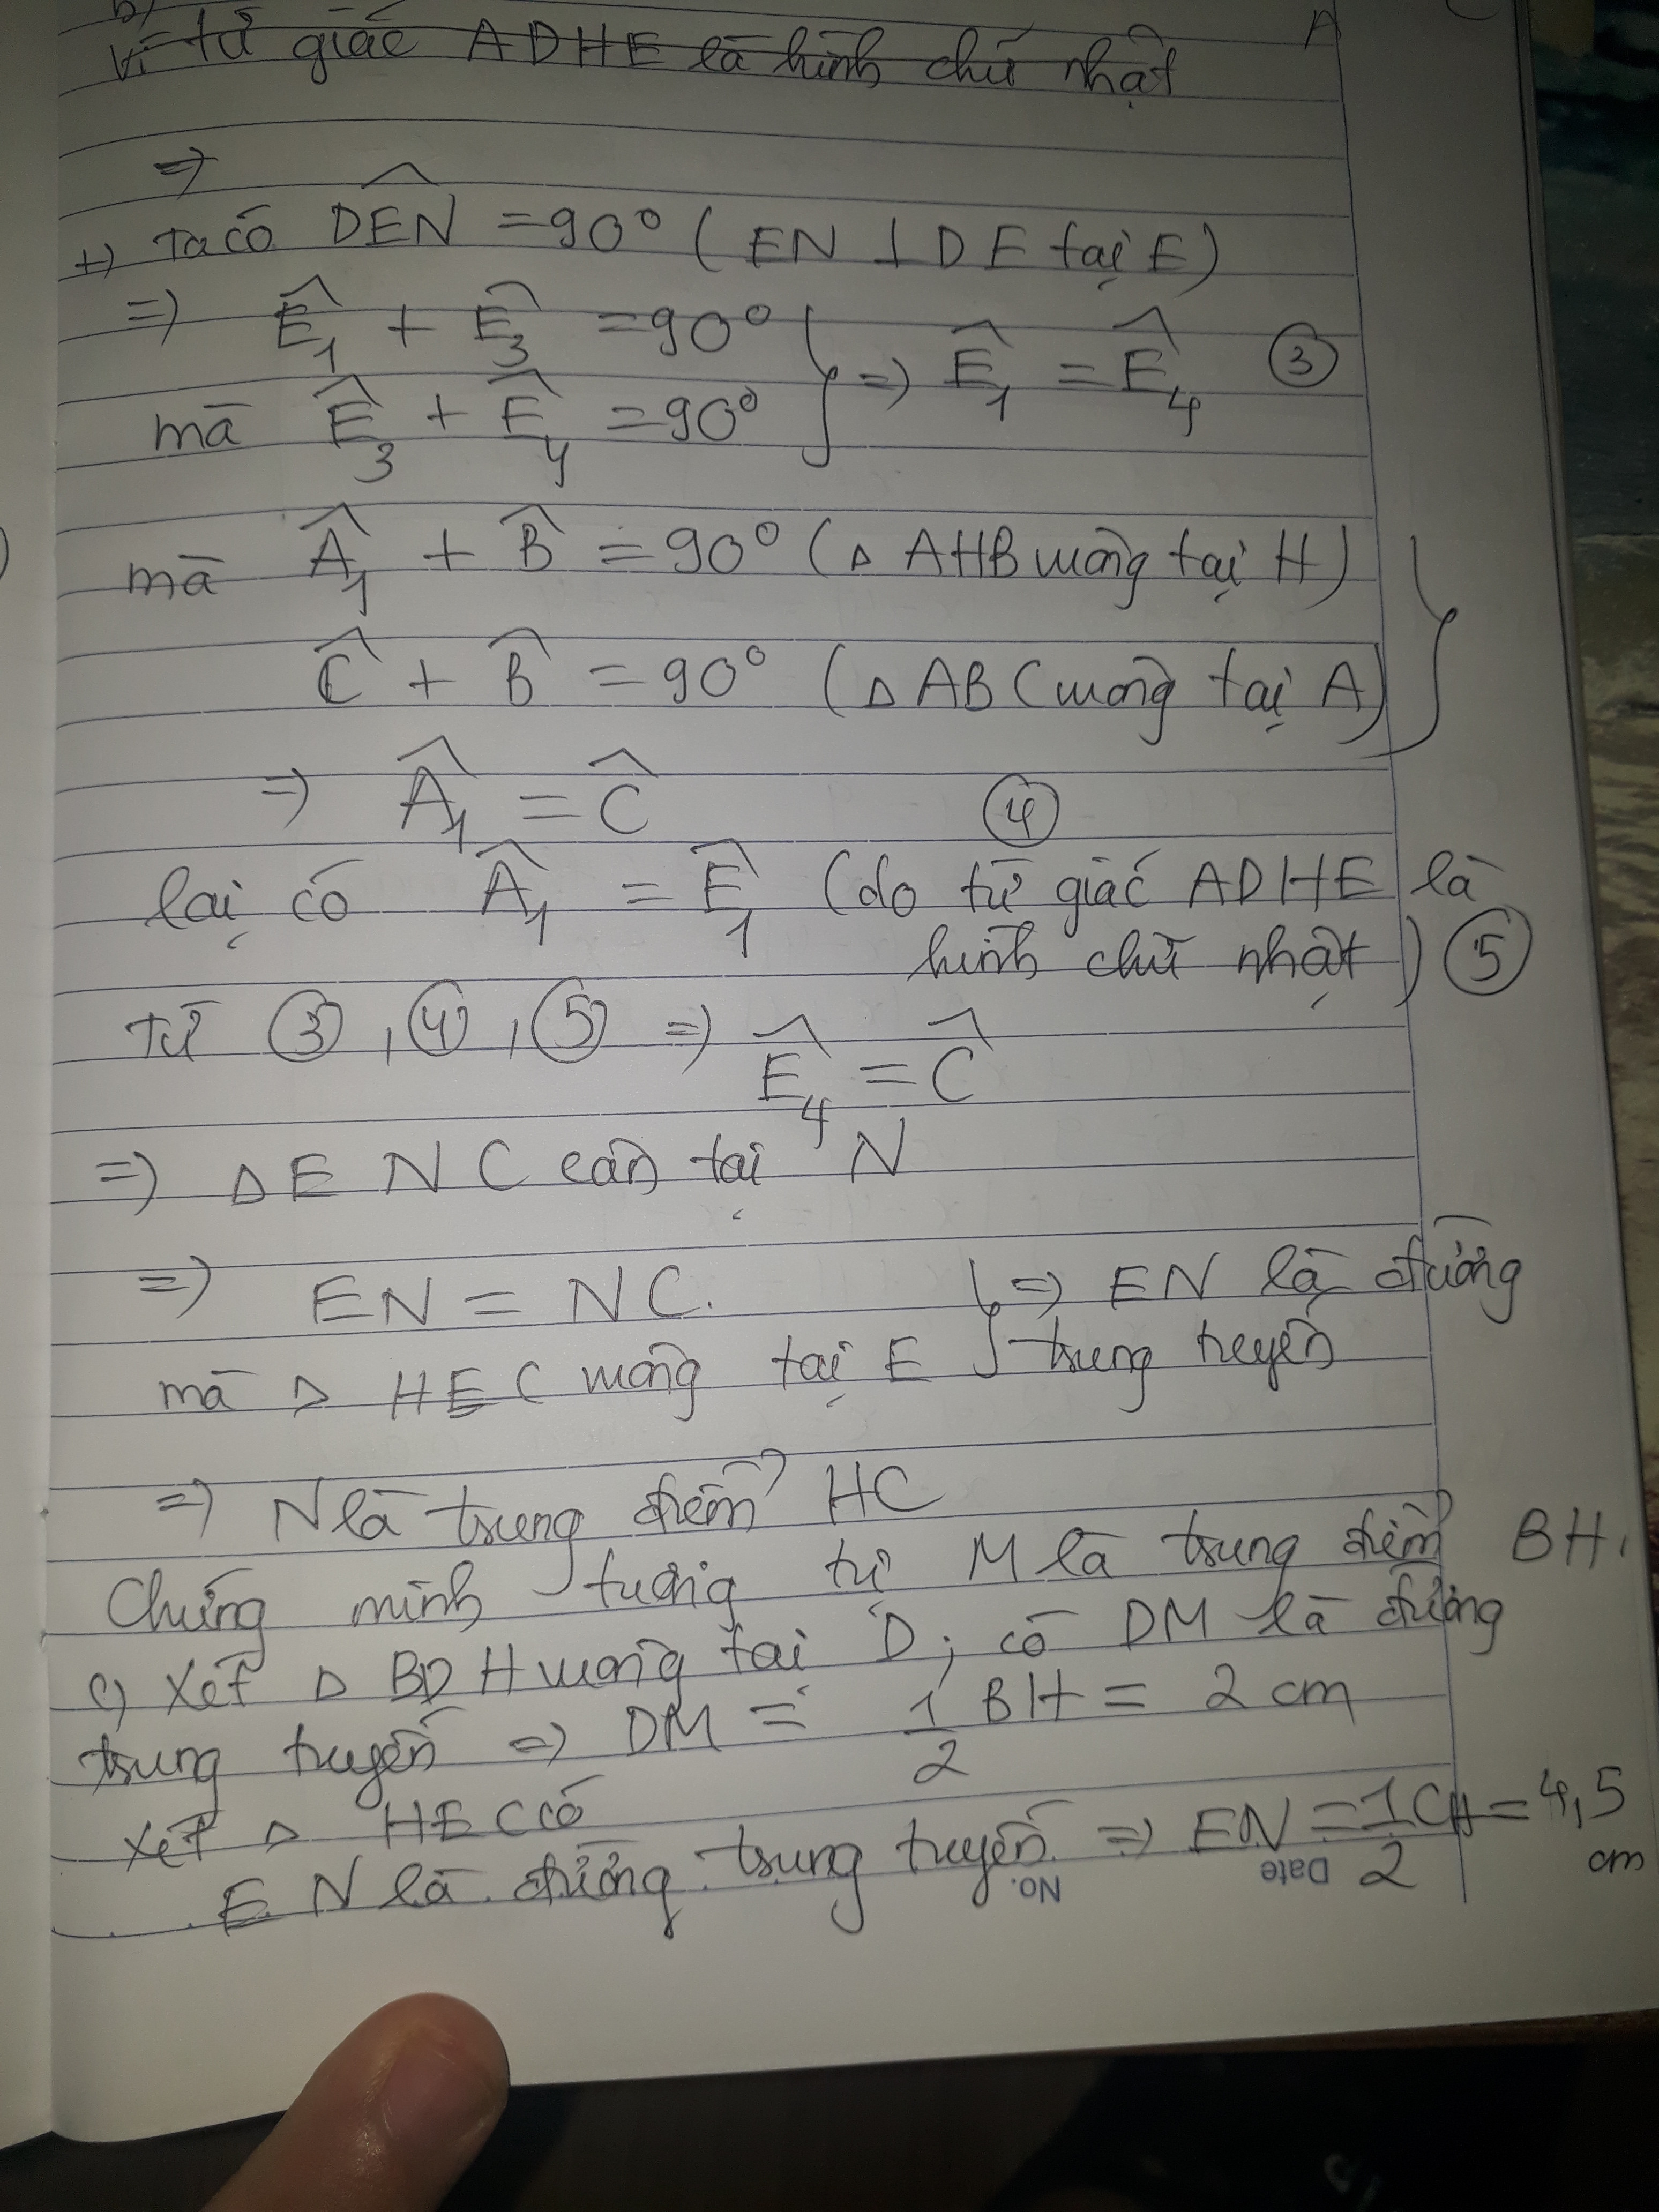 b)
Vì tứ giác ADHE là hình chữ nhật
A
=>
+) Ta có DÊN = 90° (EN ⊥ DE tại E)
=> Ê₁ + Ê₃ = 90°
mà Ê₃ + Ê₄ = 90° } => Ê₁ = Ê₄ ③
mà Â₁ + B̂ = 90° (△ AHB vuông tại H)
Ĉ + B̂ = 90° (△ ABC vuông tại A) }
=> Â₁ = Ĉ ④
lại có Â₁ = Ê₁ (do tứ giác ADHE là
hình chữ nhật) ⑤
Từ ③, ④, ⑤ => Ê₄ = Ĉ
=> △ ENC cân tại N
=> EN = NC. } => EN là đường
mà △ HEC vuông tại E trung tuyến
=> N là trung điểm HC
Chứng minh tương tự M là trung điểm BH.
c) Xét △ BDH vuông tại D, có DM là đường
trung tuyến => DM = 1/2 BH = 2 cm
Xét △ HEC có
EN là đường trung tuyến => EN = 1/2 CH = 4,5
cm
No.
Date